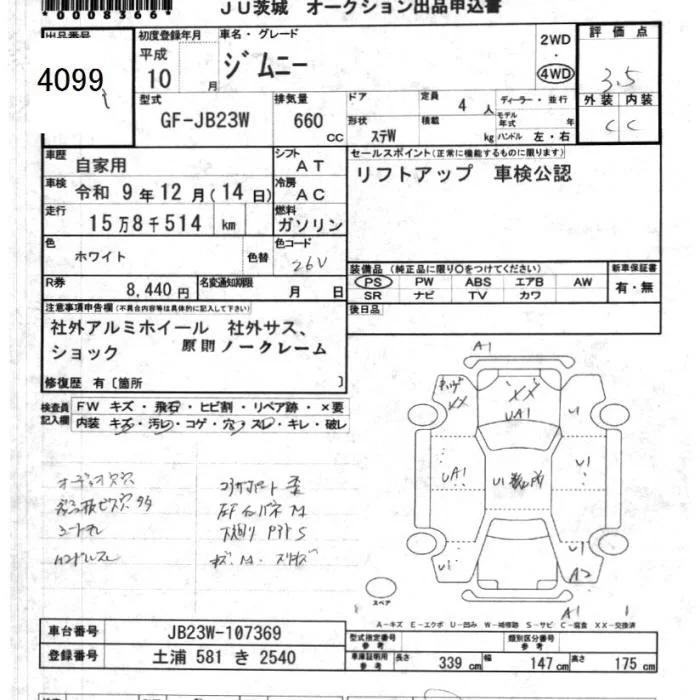 *0008366*
JU茨城 オークション出品申込書
出品番号 4099
初度登録年月 平成 10 月
車名・グレード ジムニー
2WD ・ 4WD
評価点 3.5
外装 内装
C C
型式 GF-JB23W
排気量 660 CC
ドア
形状 ステW
定員 4 人
積載 kg
ディーラー・並行
モデル年式 年
ハンドル 左・右
車歴 自家用
シフト AT
車検 令和 9年12月(14日)
冷房 AC
走行 15万8千514 km
燃料 ガソリン
色 ホワイト
色替
色コード 26V
R券 8,440円
名変通知期限 月 日
セールスポイント(正常に機能するものに限ります)
リフトアップ 車検公認
装備品 (純正品に限り○をつけてください)
PS PW ABS エアB AW
SR ナビ TV カワ
新車保証書
有・無
後日品
注意事項申告欄(不具合内容等は具体的に記入して下さい)
社外アルミホイール 社外サス、
ショック 原則ノークレーム
修復歴 有〔箇所 〕
検査員記入欄
FW キズ・飛石・ヒビ割・リペア跡・×要
内装 キズ・汚レ・コゲ・穴・スレ・キレ・破レ
A1
XX
XX
UA1
U1
UA1
U1
U1
U1
U1
A2
A1
スペア
A−キズ E−エクボ U−凹み W−補修跡 S−サビ C−腐食 XX−交換済
車台番号 JB23W-107369
登録番号 土浦 581 き 2540
型式指定番号 参考
類別区分番号 参考
車庫証明用 参考 長さ 339 cm 幅 147 cm 高さ 175 cm